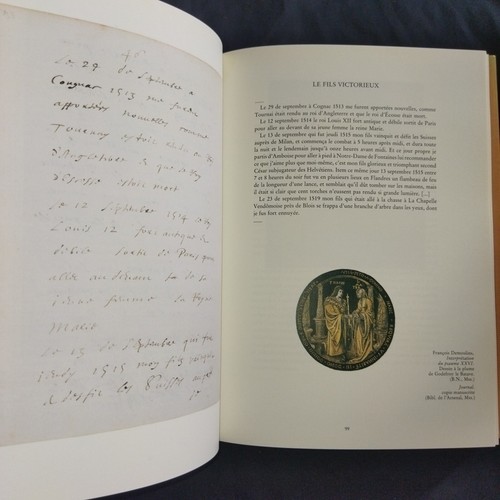 Le 29 de septembre a
Cognac 1513 me furen
nouvelles comme
Tournay
d'Angleterre & que le Roy
d'Escosse estoit mort
Le 12 Septembre 1514 le Roy
Louis 12 fort antique &
debile sortit de Paris pour
aller au devant de sa
jeune femme la Reyne
Marie
Le 13 de Septembre qui fut
Jeudy 1515 mon filz
& desfit les Suisses
LE FILS VICTORIEUX
Le 29 de septembre à Cognac 1513 me furent apportées nouvelles, comme
Tournai était rendu au roi d'Angleterre et que le roi d'Écosse était mort.
Le 12 septembre 1514 le roi Louis XII fort antique et débile sortit de Paris
pour aller au devant de sa jeune femme la reine Marie.
Le 13 de septembre qui fut jeudi 1515 mon fils vainquit et défit les Suisses
auprès de Milan, et commença le combat à 5 heures après midi, et dura
toute la nuit et le lendemain jusqu'à onze heures avant midi. Et ce jour propre je
partis d'Amboise pour aller à pied à Notre-Dame-de-Fontaines lui recommander
ce que j'aime plus que moi-même, c'est mon fils glorieux et triomphant second
César subjugateur des Helvétiens. Item ce même jour 13 septembre 1515 entre
7 et 8 heures du soir fut vu en plusieurs lieux en Flandres un flambeau de feu
de la longueur d'une lance, et semblait qu'il dût tomber sur les maisons, mais
était si clair que cent torches n'eussent pas rendu si grande lumière. [...]
Le 25 de septembre 1519 mon fils qui était allé à la chasse à La Chapelle
Vendômoise près de Blois se frappa d'une branche d'arbre dans les yeux, dont
je fus fort ennuyée.
François Demoulins,
interprétation
du psaume XXVI.
Dessin à la plume
de Godefroy le Batave.
(B.N., Mss.)
Journal,
copie manuscrite
(Bibl. de l'Arsenal, Mss.)